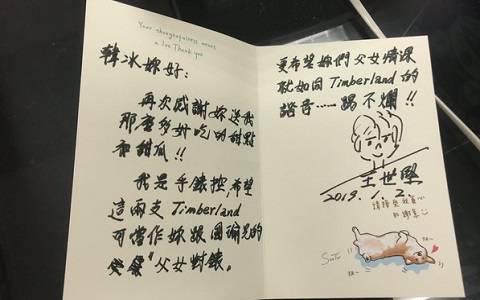 Your thoughtfulness means
a lot. Thank you
韓冰妳好：
再次感謝妳送我
那麼多好吃的甜點
和甜瓜!!
我是手錶控,希望
這兩支 Timberland
可當作妳跟國瑜兄的
父女對錶。
更希望妳們父女情深
就如同Timberland 的
諧音……踢不爛!!
王世堅
2019.1.2.